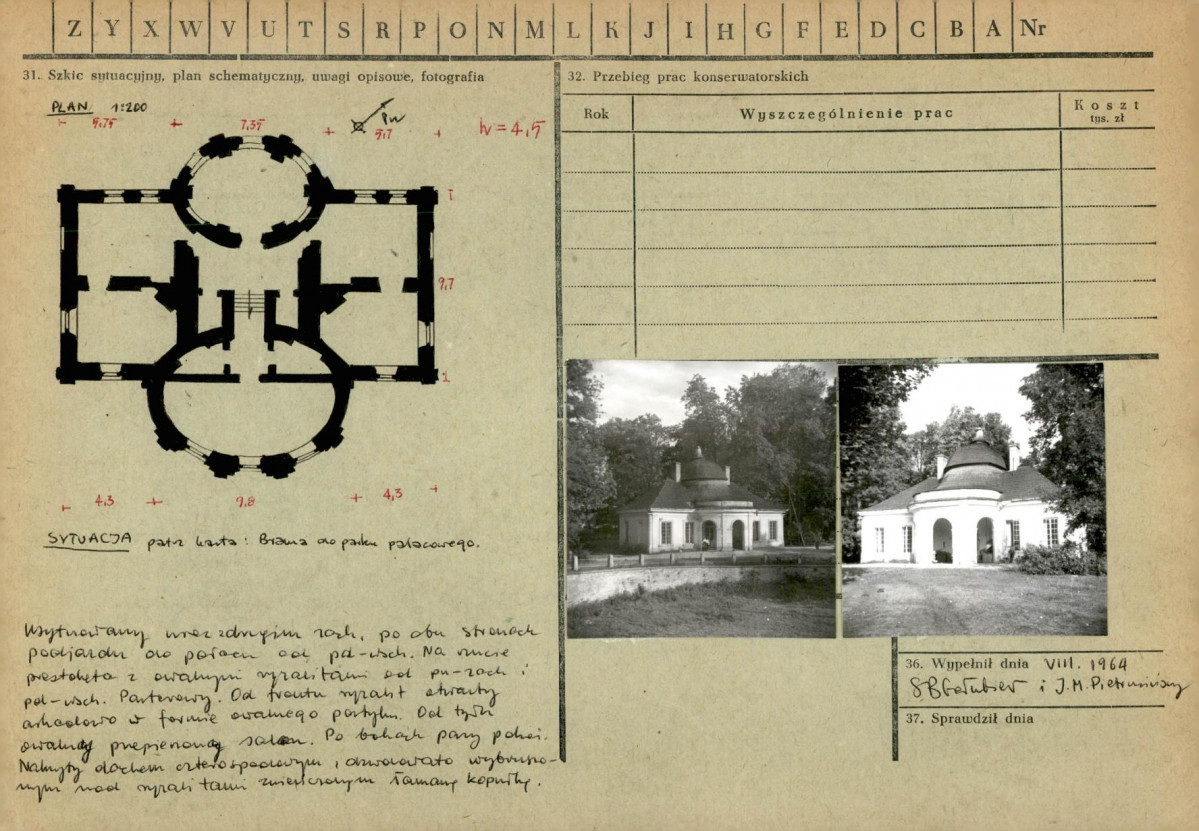 Z Y X W V U T S R P O N M L K J I H G F E D C B A Nr
31. Szkic sytuacyjny, plan schematyczny, uwagi opisowe, fotografia
PLAN 1:200
5,75 7,35 5,7
h = 4,5
9,7
4,3 9,8 4,3
SYTUACJA patrz karta: Brama do parku pałacowego.
Usytuowany wraz z drugim zach. po obu stronach
podjazdu do pałacu od pd-wsch. Na rzucie
prostokąta z owalnymi ryzalitami od pn-zach i
pd-wsch. Parterowy. Od frontu ryzalit otwarty
arkadowo w formie owalnego portyku. Od tyłu
owalny salon. Po bokach pary pokoi.
Nakryty dachem czterospadowym, dzwonowato wybrzuszo-
nym nad ryzalitami zwieńczonym łamaną kopułką.
32. Przebieg prac konserwatorskich
Rok Wyszczególnienie prac Koszt
tys. zł
36. Wypełnił dnia VIII. 1964
i J.M.
37. Sprawdził dnia